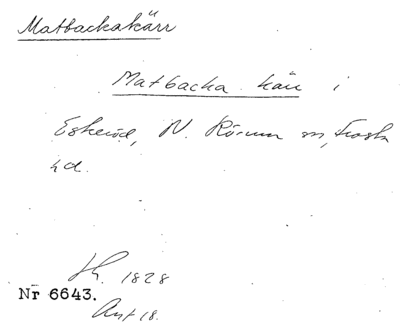 Matbackakärr
Matbacka kärr i
Eskeröd, N. Rörum sn, Frosta
hd.
Lh. 1828
Nr 6643.
Ant 18.